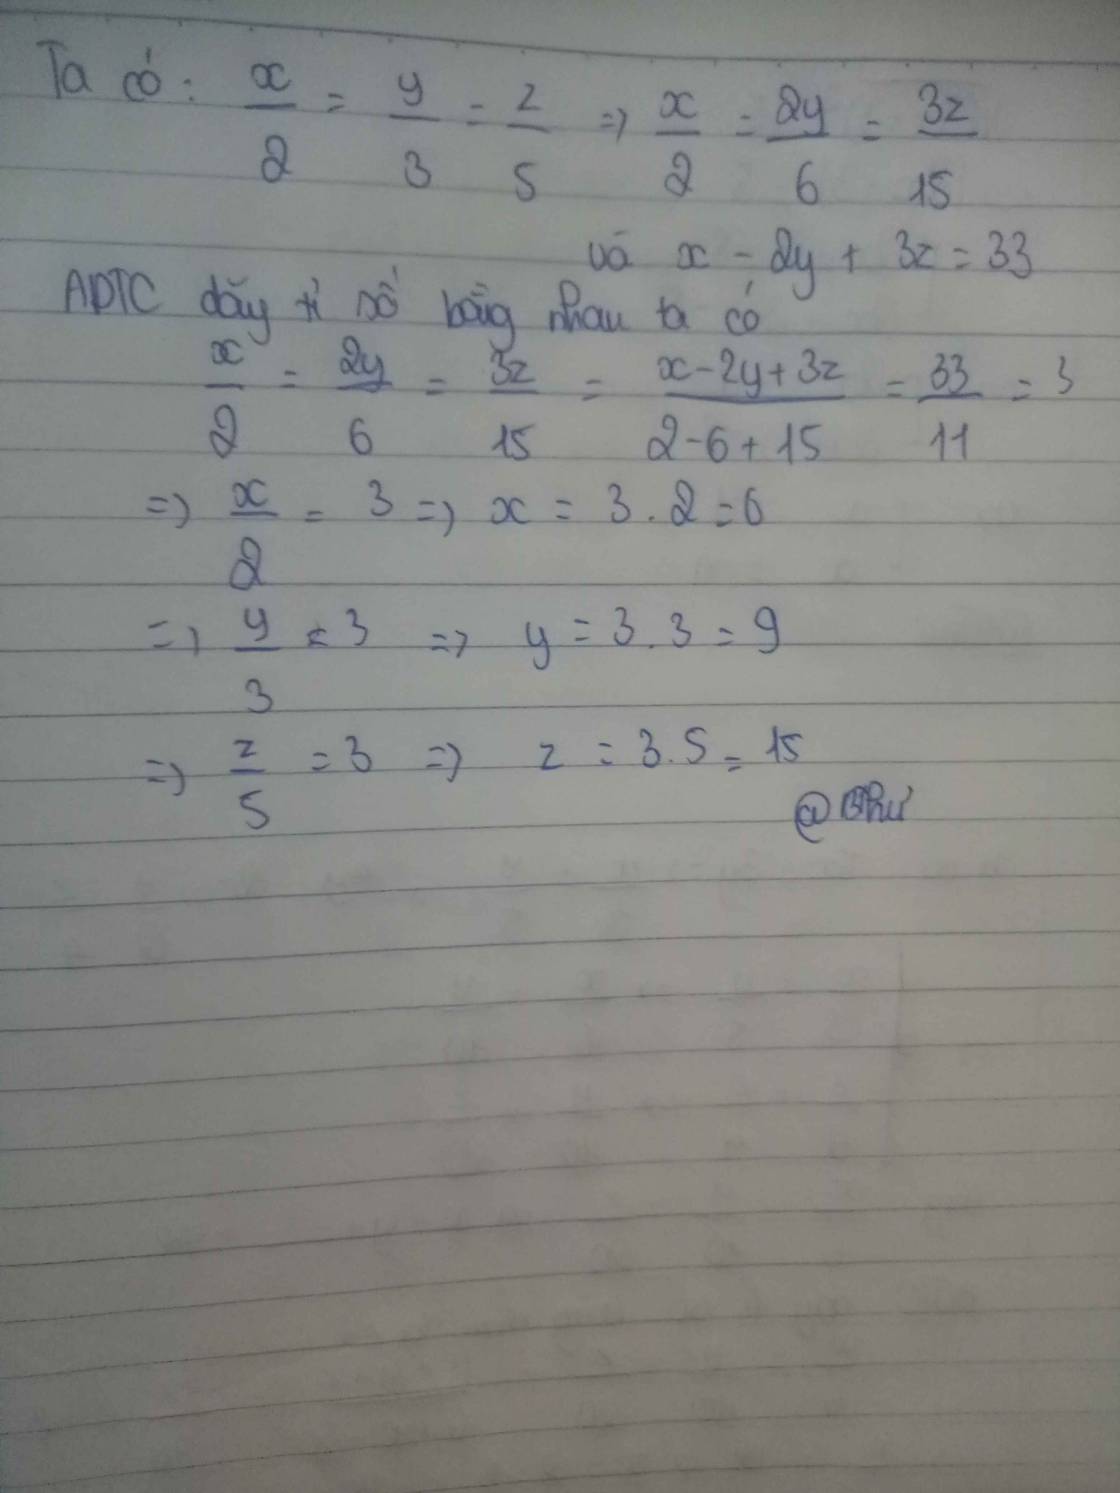 Ta có: x/2 = y/3 = z/5 => x/2 = 2y/6 = 3z/15
và x - 2y + 3z = 33
ADTC dãy tỉ số bằng nhau ta có
x/2 = 2y/6 = 3z/15 = x-2y+3z/2-6+15 = 33/11 = 3
=> x/2 = 3 => x = 3.2 = 6
=> y/3 = 3 => y = 3.3 = 9
=> z/5 = 3 => z = 3.5 = 15